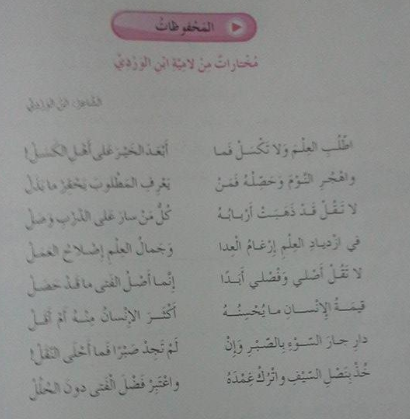 المَحْفوظاتُ
مُخْتاراتٌ مِنْ لامِيَّةِ ابْنِ الوَرْدِيِّ
الشّاعل: ابن الوردي
اطْلُبِ العِلْمَ وَلا تَكْسَلْ فَما أَبْعَدَ الخَيْرَ عَلى أَهْلِ الكَسَلْ!
واهْجُرِ النَّوْمَ وَحَصِّلْهُ فَمَنْ يَعْرِفِ المَطْلوبَ يَحْقِرْ ما بَذَلْ
لا تَقُلْ قَدْ ذَهَبَتْ أَرْبابُهُ كُلُّ مَنْ سارَ عَلى الدَّرْبِ وَصَلْ
في ازْدِيادِ العِلْمِ إِرْغامُ العِدا وَجَمالُ العِلْمِ إِصْلاحُ العَمَلْ
لا تَقُلْ أَصْلي وَفَصْلي أَبَدًا إِنَّما أَصْلُ الفَتى ما قَدْ حَصَلْ
قيمَةُ الإِنْسانِ ما يُحْسِنُهُ أَكْثَرَ الإِنْسانُ مِنْهُ أَمْ أَقَلْ
دارِ جارَ السّوْءِ بِالصَّبْرِ وَإِنْ لَمْ تَجِدْ صَبْرًا فَما أَحْلى النَّقَلْ!
خُذْ بِنَصْلِ السَّيْفِ واتْرُكْ غِمْدَهُ واعْتَبِرْ فَضْلَ الفَتى دونَ الحُلَلْ